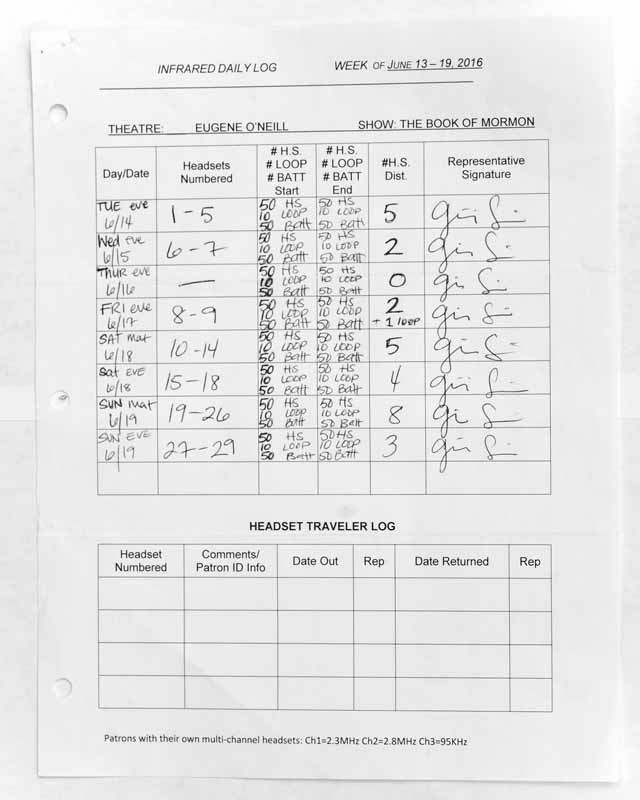 INFRARED DAILY LOG WEEK OF JUNE 13 – 19, 2016
THEATRE: ___ EUGENE O'NEILL SHOW: THE BOOK OF MORMON
Day/Date Headsets Numbered # H.S. # LOOP # BATT Start # H.S. # LOOP # BATT End #H.S. Dist. Representative Signature
TUE eve 6/14 1-5 50 HS 10 LOOP 50 Batt 50 HS 10 LOOP 50 Batt 5
Wed eve 6/15 6-7 50 HS 10 LOOP 50 Batt 50 HS 10 LOOP 50 Batt 2
THUR eve 6/16 — 50 HS 10 LOOP 50 Batt 50 HS 10 LOOP 50 Batt 0
FRI eve 6/17 8-9 50 HS 10 LOOP 50 Batt 50 HS 10 LOOP 50 Batt 2 + 1 loop
SAT mat 6/18 10-14 50 HS 10 LOOP 50 Batt 50 HS 10 LOOP 50 Batt 5
Sat EVE 6/18 15-18 50 HS 10 LOOP 50 Batt 50 HS 10 LOOP 50 Batt 4
SUN mat 6/19 19-26 50 HS 10 LOOP 50 Batt 50 HS 10 LOOP 50 Batt 8
SUN EVE 6/19 27-29 50 HS 10 LOOP 50 Batt 50 HS 10 LOOP 50 Batt 3
HEADSET TRAVELER LOG
Headset Numbered Comments/ Patron ID Info Date Out Rep Date Returned Rep
Patrons with their own multi-channel headsets: Ch1=2.3MHz Ch2=2.8MHz Ch3=95KHz